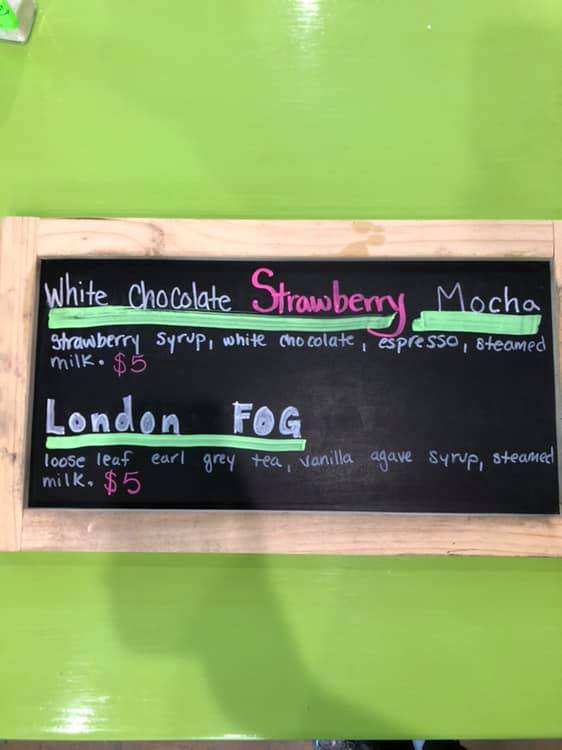 White Chocolate Strawberry Mocha
strawberry syrup, white chocolate, espresso, steamed
milk. $5
London FOG
loose leaf earl grey tea, vanilla agave syrup, steamed
milk. $5